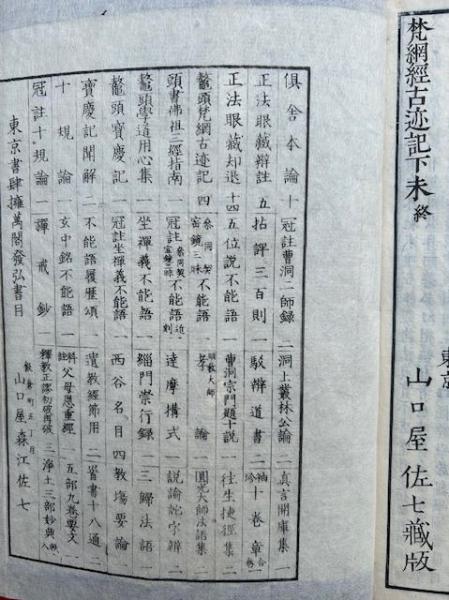 梵網經古迹記下末終
東京
山口屋佐七藏版
倶舎本論 十 冠註曹洞二師録 二 洞上叢林公論 二 真言開庫集 一
正法眼藏辯註 五 拈評三百則 一 駁辨道書 二 十卷章
正法眼藏却退 一四 五位説不能語 一 曹洞宗門題十説 一 往生捷徑集 二
鼇頭梵網古迹記 四 參同契寶鏡三昧不能語 一 論 一 圓光大師法語集 一
頭書佛祖三經指南 一 冠註參同契寶鏡三昧不能語 達摩構式 一 説諭詫字辨 二
鼇頭學道用心集 一 坐禪義不能語 一 緇門崇行録 一 三歸法語 一
鼇頭寶慶記 一 冠註坐禪義不能語 一 西谷名目 四 教塲要論 一
寶慶記聞解 二 不能語履歴頌 一 遺教經節用 二 省書十八通 二
十規論 一 玄中銘不能語 一 科註父母恩重經 一 五部九卷要文
冠註十規論 一 禪戒鈔 一 釋教正謬初破再破 二 淨土三部妙典
東京書肆擁萬閣發弘書目
飯倉町五丁目
山口屋森江佐七